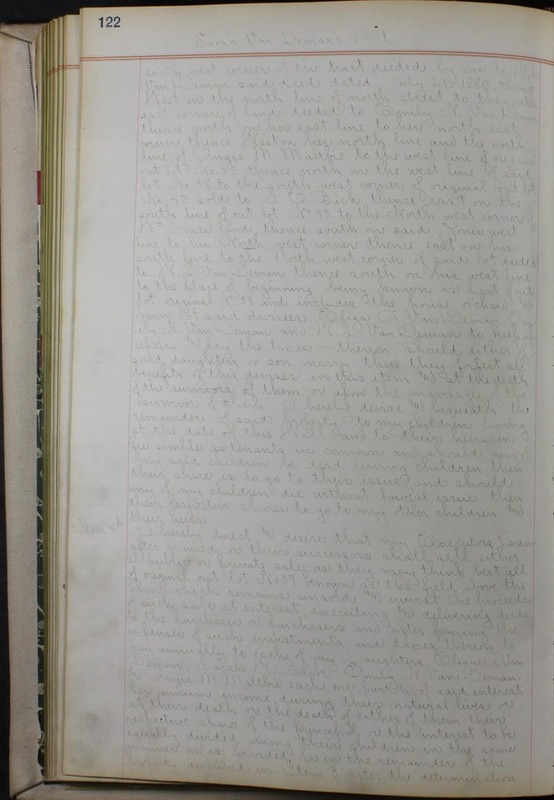 122
Sarah Van Deman's Will
south west corner of the tract deeded by me to
Van Deman said deed dated July 31, 1889 thence
West on the north line of north street to the south
east corner of land deeded to Emily N. Van Deman
thence north on her east line to her north east
corner thence West on her north line and the north
line of Angie M. Malthie to the west line of original
out lot No. 38 thence north on the west line of said
lot No. 38 to the south west corner of original out lot
No. 40 sold to Buck thence east on the
south line of out lot No 40 to the North west corner of
Jones land, thence south on said Jones west
line to his North west corner thence east on his
south line to the North west corner of said lot deeded
to Van Deman thence south on his west line
to the place of beginning being known as part of out
lot original No 38 and includes the house orchard and
barn. said devisees Eliza C. Van Deman
N. Van Deman and Van Deman to keep up
repairs and pay the taxes thereon should either of
said daughters or son marry then they forfeit all
benefits of this devise in this item and at the death
of the survivors of them or upon the marriage of the
survivor of them I hereby devise and bequeath the
remainder of said property to my children living
at the date of this Will and to their heirs in
fee simple as tenants in common and should any of
my said children be dead leaving children then
their share is to go to their issue and should
any of my children die without lawful issue then
their respective shares to go to my other children and
their heirs
Item 4th I hereby direct and desire that my Executors herein
after named or their successors shall sell either
at public or private sale as they may think best all
of original out lot No 37 known as the field above the
which remains unsold and invest the proceeds
of such sale at interest executing and delivering deeds
to the purchaser or purchasers and after paying the
expenses of such investments and taxes thereon to
pay annually to each of my daughters Eliza C. Van
Deman, Sarah Emily N. Van Deman
Angie M. Malthie each one fourth of said interest
her annual income during their natural lives &
at their death or the death of either of them their
respective share of the principal or the interest to be
equally divided among their children in the same
manner as is provided for in the remainder of the
property described in Item 3 after the determination